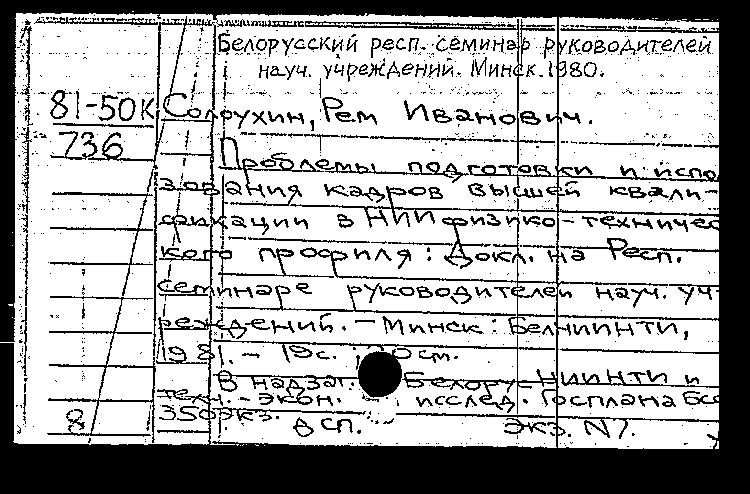 Белорусский респ. семинар руководителей
науч. учреждений. Минск. 1980.
81-50К Солоухин, Рем Иванович.
736
Проблемы подготовки и испо
зования кадров высшей квали-
фикации в НИИ физико-техничес
кого профиля: Докл. на Респ.
семинаре руководителей науч. уч-
реждений. - Минск: БелНИИНТИ,
1981. - 19 с. 20 см.
В надзаг. Белорус. НИИНТИ и
техн.-экон. исслед. Госплана БСС
350 экз.
8 ДСП. Экз. N7.